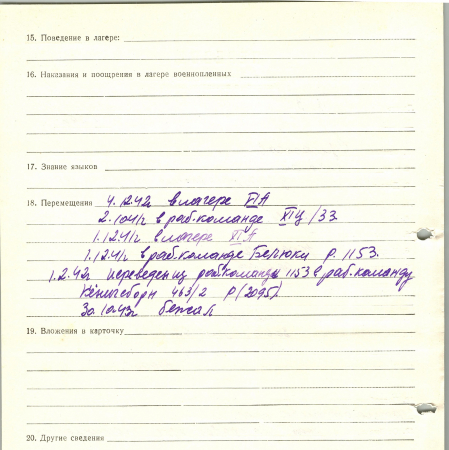 15. Поведение в лагере:
16. Наказания и поощрения в лагере военнопленных
17. Знание языков
18. Перемещения 4.12.42г в лагере VI А
2.10.41г в раб.команде XIЦ/33
1.12.41г в лагере VI А
1.12.41г в раб.команде Белюки Р. 1153.
1.2.42г переведен из раб.команды 1153 в раб.команду
Кёнигсборн 463/2 Р/2095/.
30.10.43г бежал
19. Вложения в карточку
20. Другие сведения